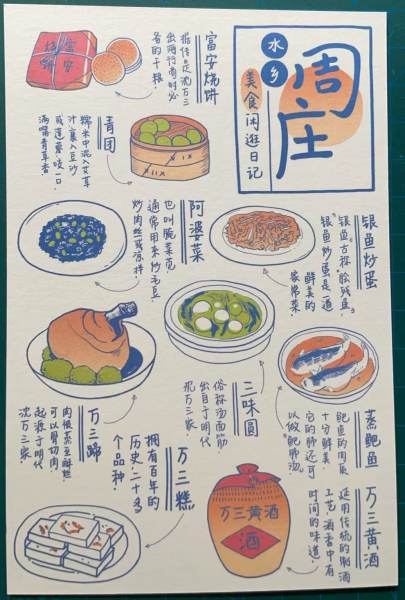 水乡
周庄
美食闲逛日记
富安烧饼
据传是沈万三
出商行商时必
备的干粮.
青团
糯米中混入艾草
汁裹入豆沙
或莲蓉咬一口,
满嘴青草香
阿婆菜
也叫腌菜苋
通常用来炒毛豆
炒肉丝或凉拌.
银鱼炒蛋
银鱼古称“脍残鱼”
“银鱼炒蛋是一道
鲜美的
家常菜
三味圆
俗称汤面筋
出自于明代
沈万三家.
蒸鲃鱼
鲃鱼的肉质
十分鲜美.
它的肺还可
以做“鲃肺汤.
万三蹄
肉质蒸至酥烂
可以骨切肉.
起源于明代
沈万三家
万三糕
拥有百年的
历史.二十多
个品种.
万三黄酒
延用传统的制酒
工艺.酒香中有
时间的味道.
万三黄酒
酒